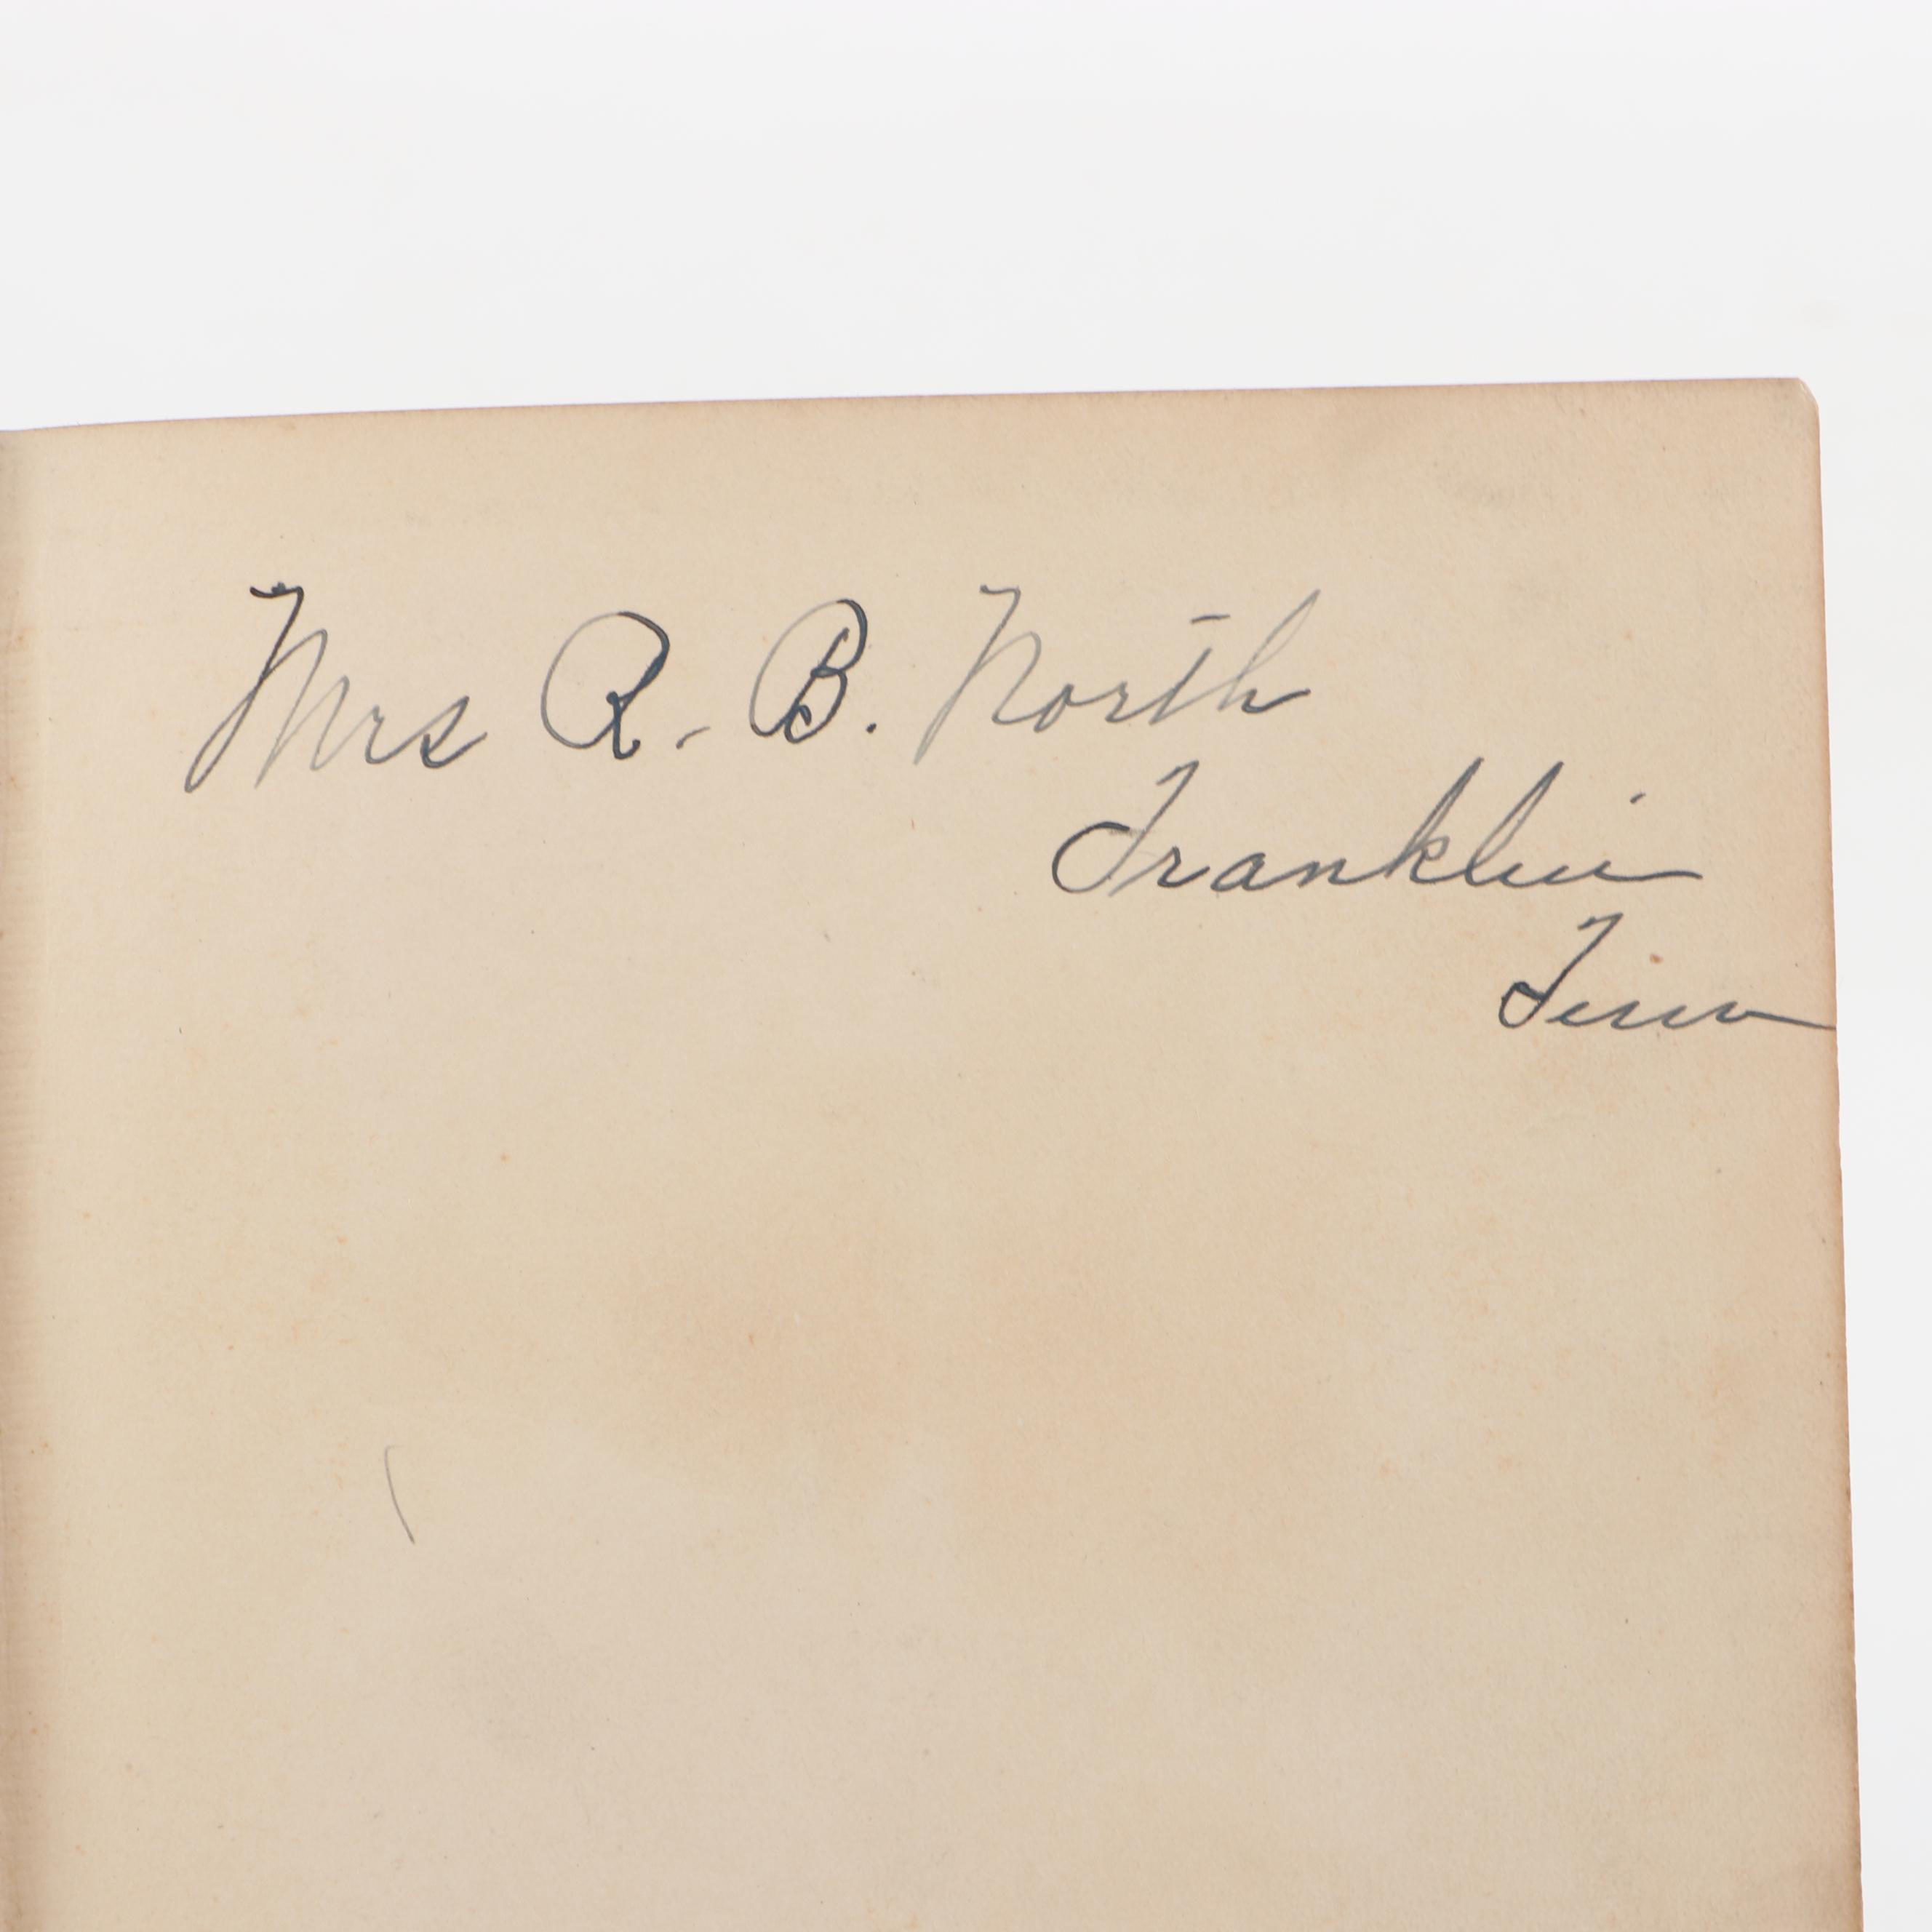 Mrs R. B. North
Franklin
Tenn